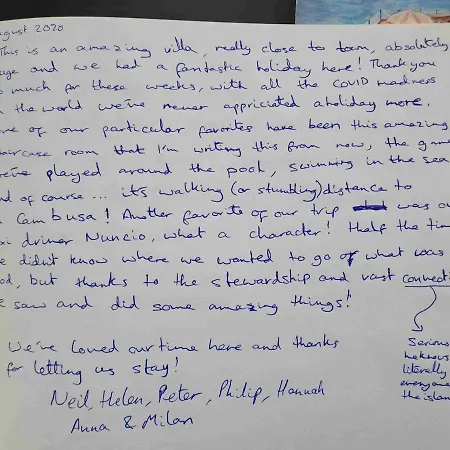 ugust 2020
This is an amazing villa, really close to town, absolutely
uge and we had a fantastic holiday here! Thank you
o much for these weeks, with all the COVID madness
n the world we've never appriciated a holiday more.
ne of our particular favorites have been this amazing
taircase room that I'm writing this from now, the game
we've played around the pool, swimming in the sea
nd of course... it's walking (or stumbling) distance to
Cambusa! Another favorite of our trip was ou
xi driver Nuncio, what a character! Half the tim
e didn't know where we wanted to go or what was
od, but thanks to the stewardship and vast connecti
e saw and did some amazing things!
We've loved our time here and thanks
for letting us stay!
Neil, Helen, Peter, Philip, Hannah
Anna & Milan
Serious
he knows
literally
everyone
the islan